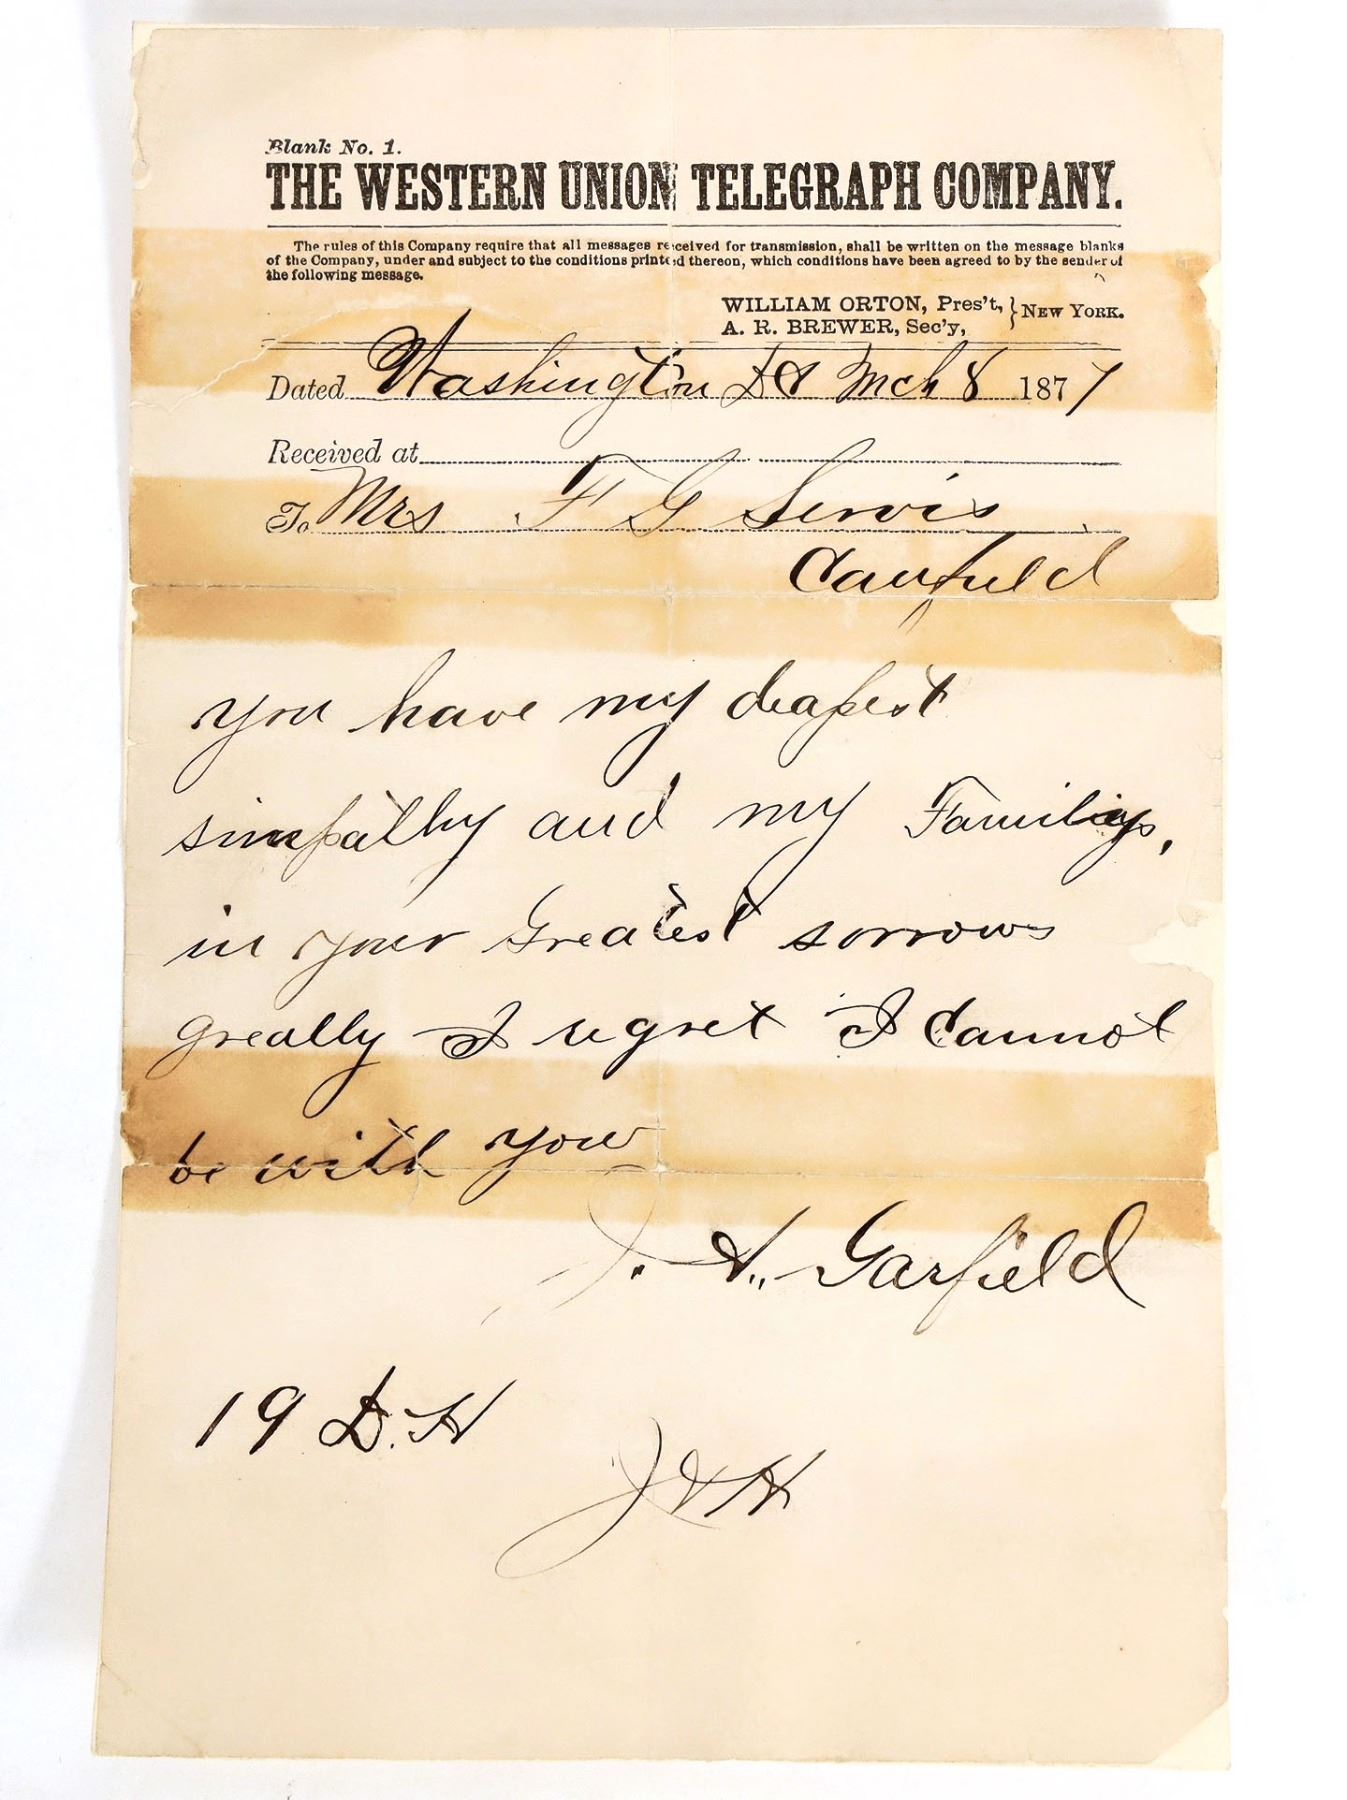 Blank No. 1.
THE WESTERN UNION TELEGRAPH COMPANY.
The rules of this Company require that all messages received for transmission, shall be written on the message blanks
of the Company, under and subject to the conditions printed thereon, which conditions have been agreed to by the sender of
the following message.
WILLIAM ORTON, Pres't, } NEW YORK.
A. R. BREWER, Sec'y,
Dated Washington DC Mch 8 1877
Received at
To Mrs F G Servis
Canfield
you have my deapest
simpathy and my Familys,
in your Greatest sorrows
greatly I regret I Cannot
be with you
J. A. Garfield
19 D.H